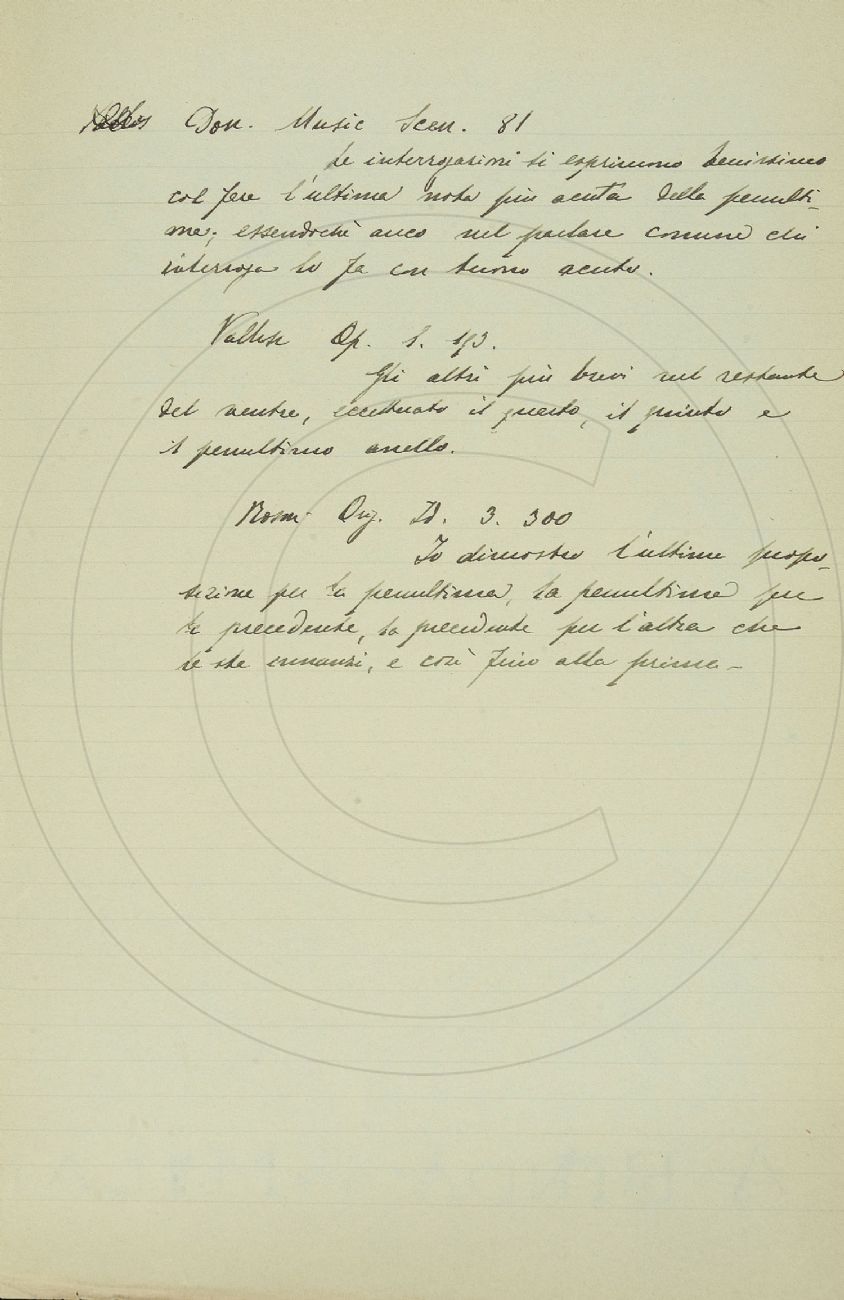 Don. Music Scen. 81
Le interrogazioni si esprimono benissimo
col fere l'ultima nota più acuta della penulti-
ma; essendochè anco nel parlare comune chi
interroga lo fa con tuono acuto.
Vallisn. Op. 1. 193.
Gli altri più brevi nel restante
del ventre, eccettuato il quarto, il quinto e
il penultimo anello.
Rosmi. Orig. Id. 3. 300
Io dimostro l'ultima propo-
sizione per la penultima, la penultima per
la precedente, la precedente per l'altra che
le sta innanzi, e così fino alla prima_